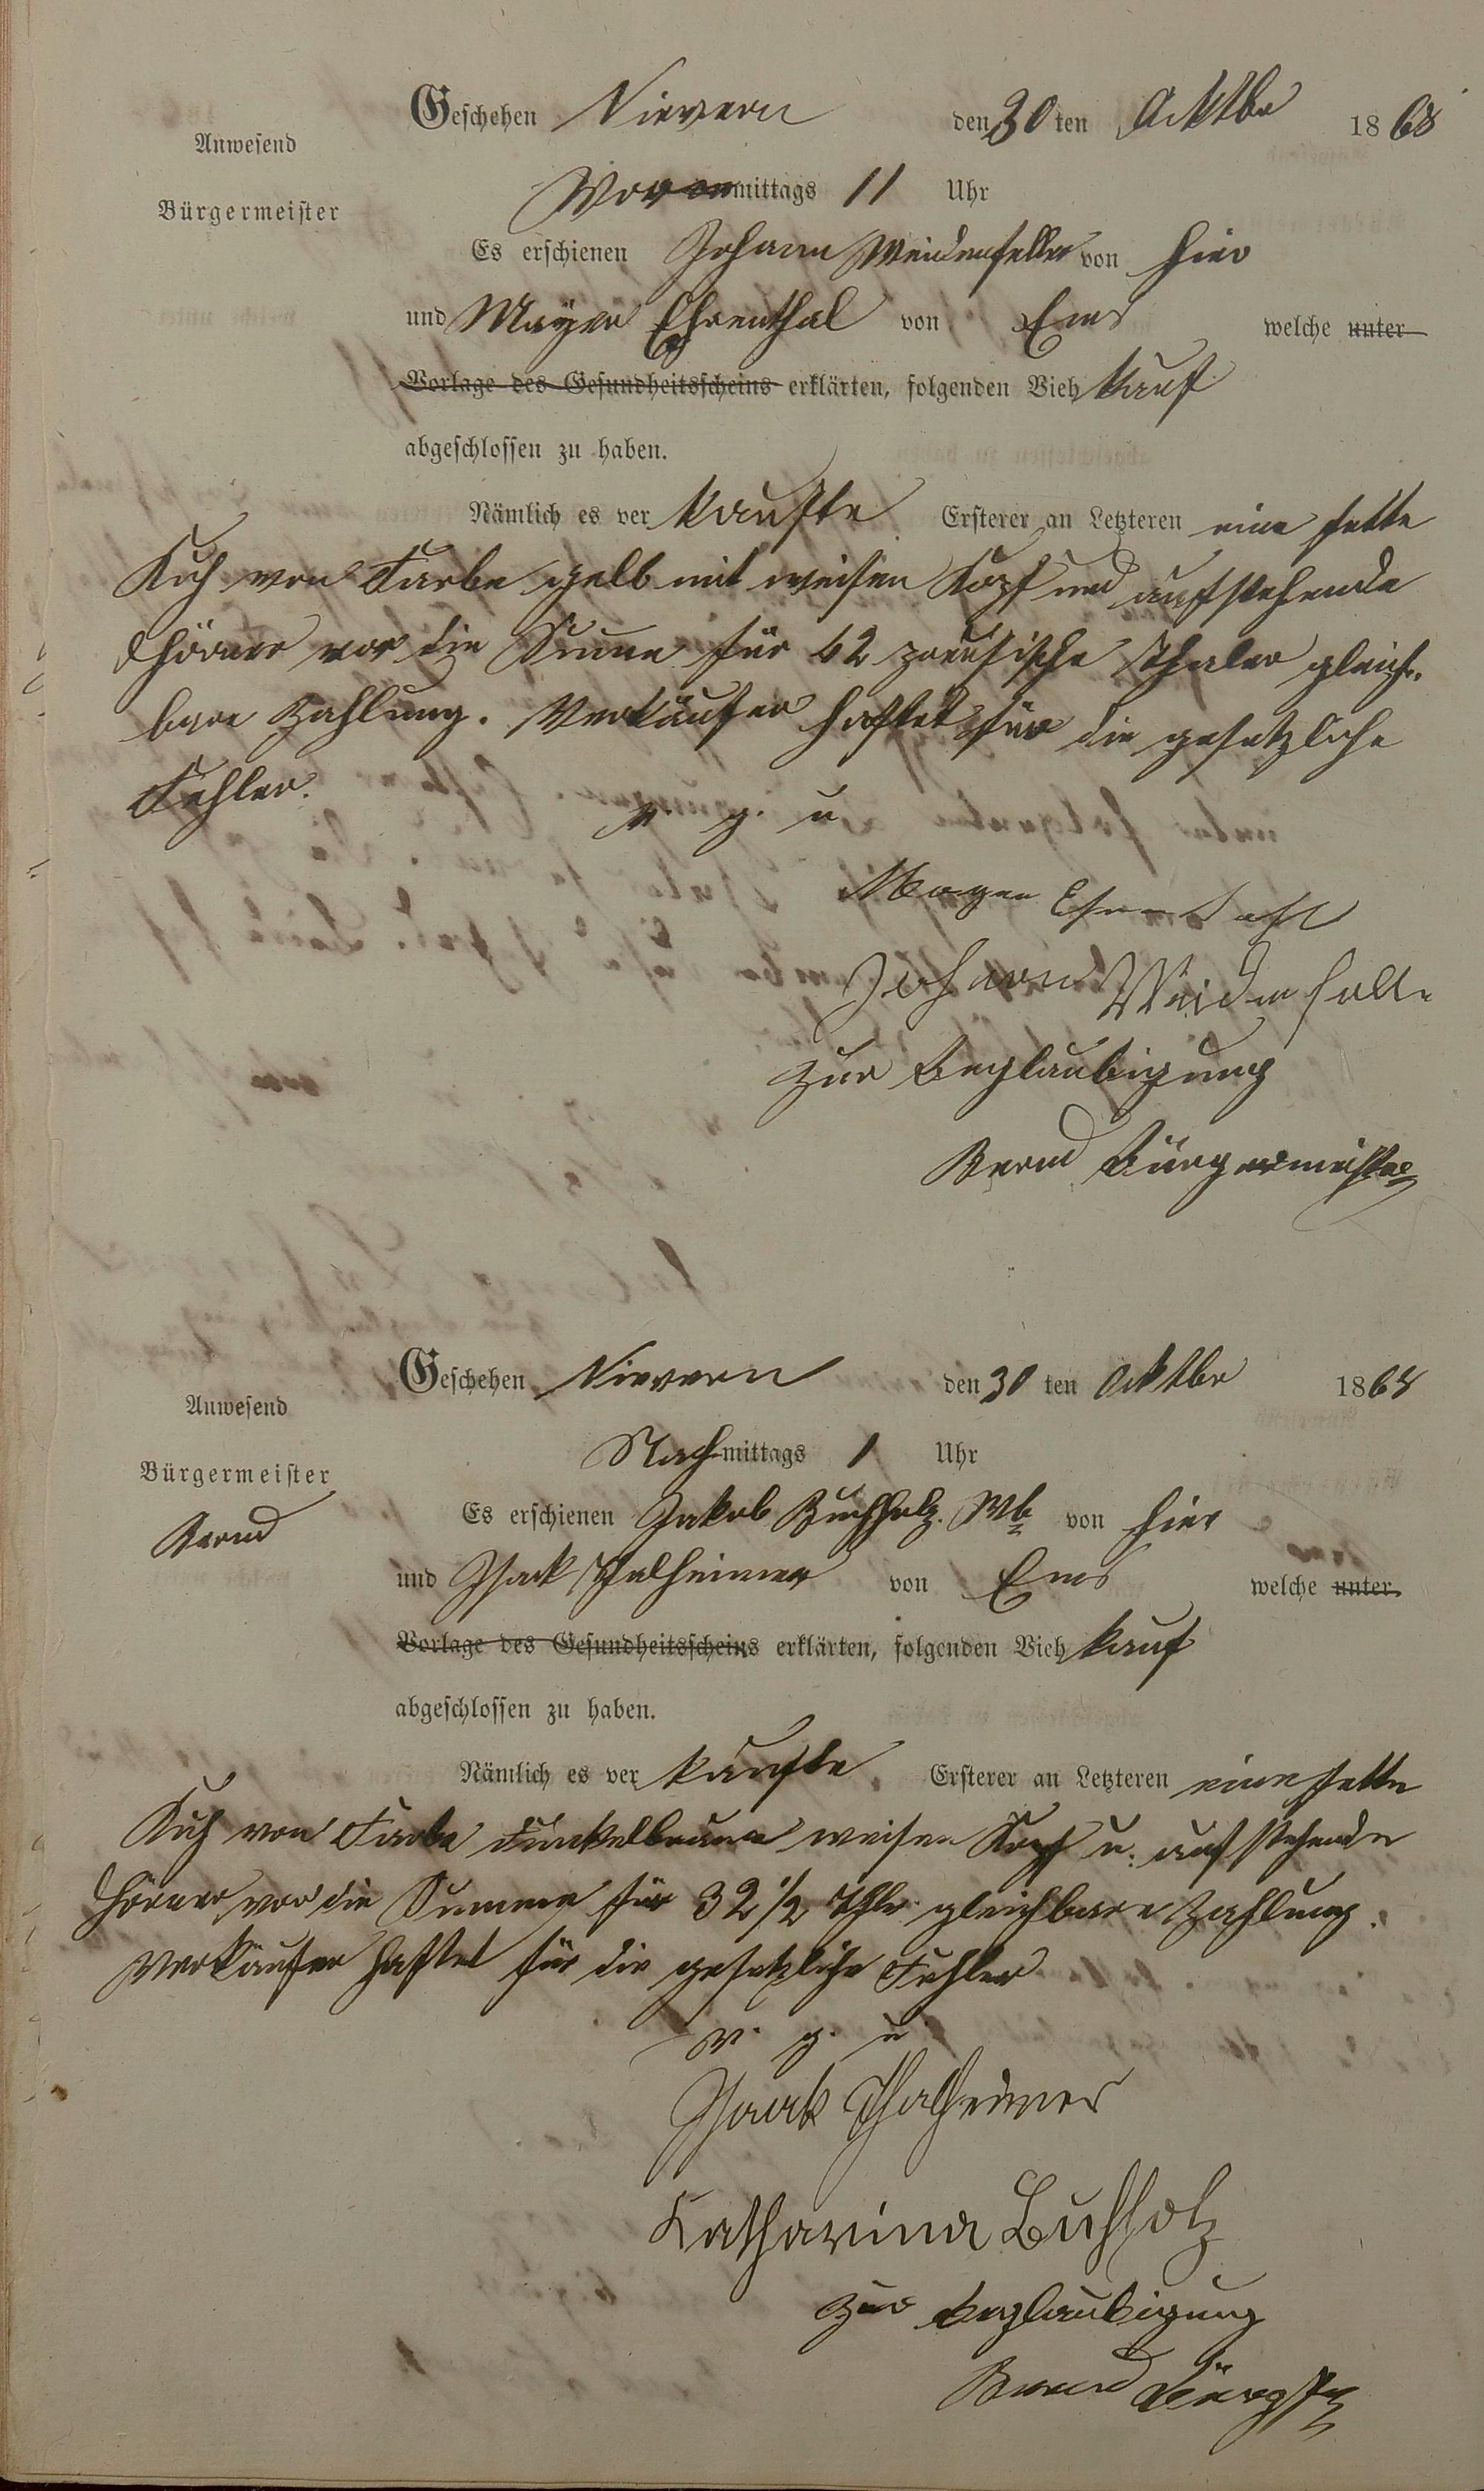 Geschehen Nievern den 30 ten Acktbr 1868
Anwesend
Vormittags 11 Uhr
Bürgermeister
Es erschienen Johann Weidenfeller von hier
und Mayer Ehrenthal von Ems welche unter
Vorlage des Gesundheitsscheins erklärten, folgenden Vieh kauf
abgeschlossen zu haben.
Nämlich es ver kaufte Ersterer an Letzteren eine fette
Kuh von Farbe gelb mit weisen Kopf und aufstehende
Hörner vor die Summe für 62 preusische Thaler gleich
bare Zahlung. Verkäufer haftet für die gesetzliche
Fehler.
v. g. u
Mayer Ehrenthal
Johann Weidenfeller
Zur Beglaubigung
Bernd Bürgermeister
Geschehen Nievern den 30 ten Ocktbr 1868
Anwesend
Nachmittags 1 Uhr
Bürgermeister
Es erschienen Jakob Buchholz Wb von hier
Bernd
und Isack Thalheimer von Ems welche unter
Vorlage des Gesundheitsscheins erklärten, folgenden Vieh kauf
abgeschlossen zu haben.
Nämlich es ver kaufte Ersterer an Letzteren eine fette
Kuh von Farbe dunkelbraun weisen Kopf u. aufstehende
Hörner vor die Summe für 32 1/2 Thlr gleichbare Zahlung.
Verkäufer haftet für die gesetzliche Fehler
v. g. u
Isaak Thalheimer
Katharina Buchholz
Zur Beglaubigung
Bernd Bürgstr